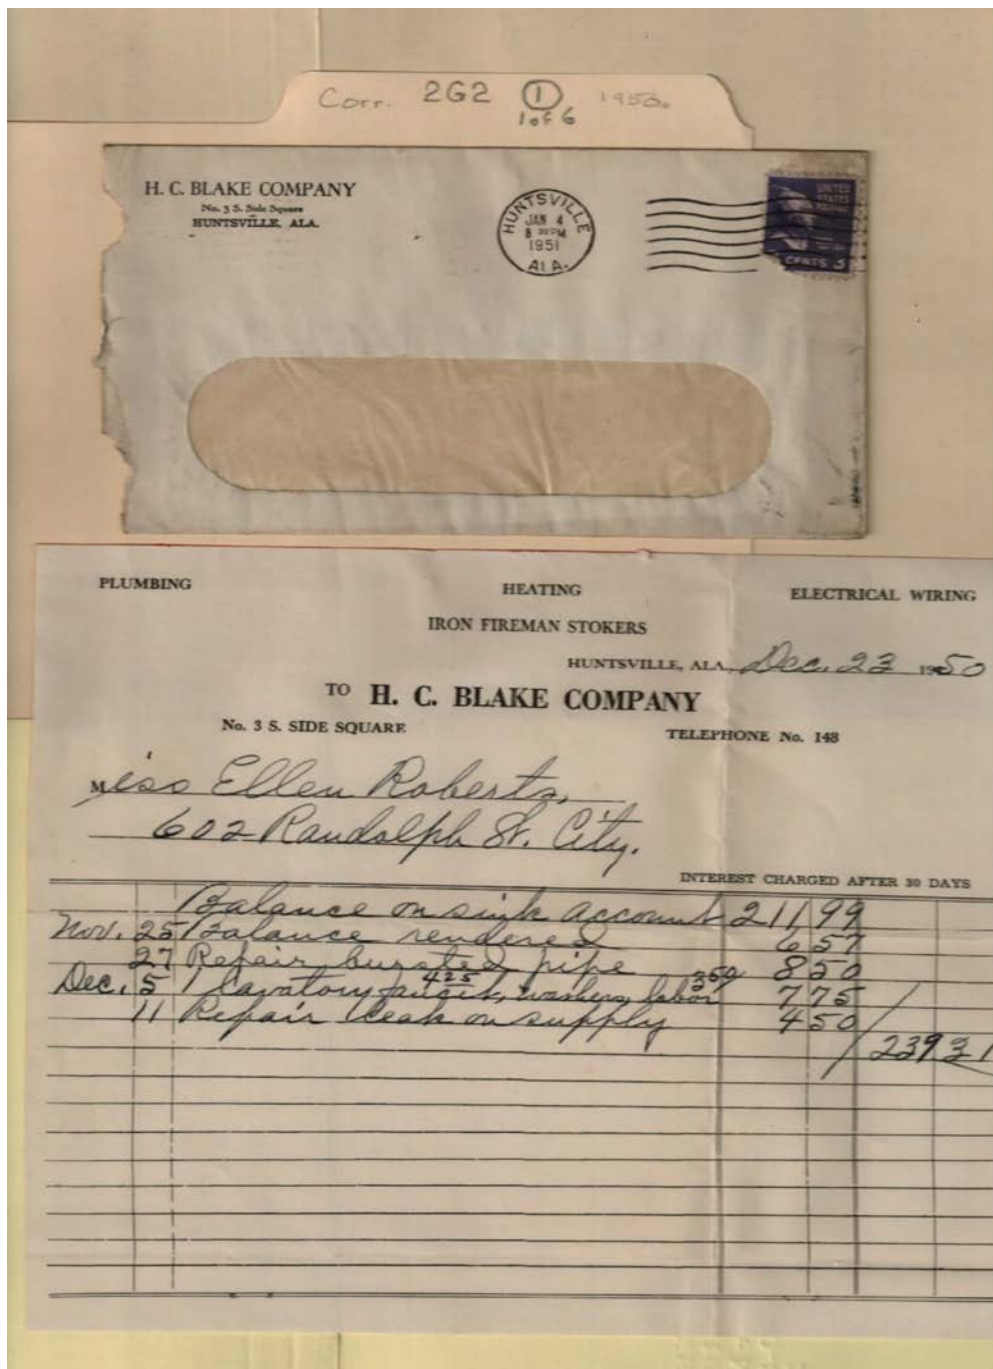 Corr. 2G2 1 1953.
1 of 6
H. C. BLAKE COMPANY
No. 3 S. Side Square
HUNTSVILLE, ALA.
HUNTSVILLE
JAN 4
8 30 PM
1951
ALA.
UNITED
STATES
CENTS 3
PLUMBING HEATING ELECTRICAL WIRING
IRON FIREMAN STOKERS
HUNTSVILLE, ALA., Dec. 23 1950
TO H. C. BLAKE COMPANY
No. 3 S. SIDE SQUARE TELEPHONE No. 148
Miss Ellen Roberts,
602 Randolph St. City.
INTEREST CHARGED AFTER 30 DAYS
Balance on sink account 211 99
Nov. 25 Balance rendered 6 57
27 Repair bursted pipe 8 50
Dec. 5 1 lavatory faucet, 425 washers, labor 350 7 75
11 Repair leak on supply 4 50
239 31